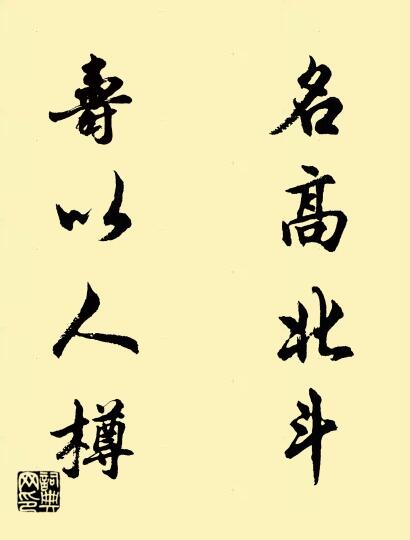 名高北斗
壽以人樽
詞典網印